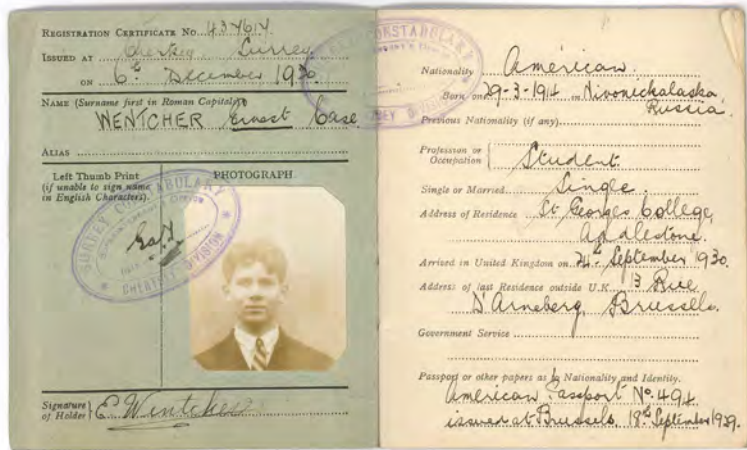 REGISTRATION CERTIFICATE No. 434614
ISSUED AT Chertsey Surrey
ON 6th December 1930
NAME (Surname first in Roman Capitals)
WENTCHER Ernest Case
ALIAS
Left Thumb Print
(if unable to sign name
in English Characters).
PHOTOGRAPH
SURREY CONSTABULARY
CHERTSEY DIVISION
Signature
of Holder
E. Wentcher
SURREY CONSTABULARY
CHERTSEY DIVISION
Nationality American.
Born on 29-3-1914 in Nivonickalaska,
Russia.
Previous Nationality (if any)
Profession or
Occupation
Student.
Single or Married Single.
Address of Residence St Georges College,
Addlestone.
Arrived in United Kingdom on 24th September 1930.
Address of last Residence outside U.K. 13 Rue
D'Arneberg, Brussels.
Government Service
Passport or other papers as to Nationality and Identity.
American Passport No. 494
issued at Brussels, 18th September 1929.